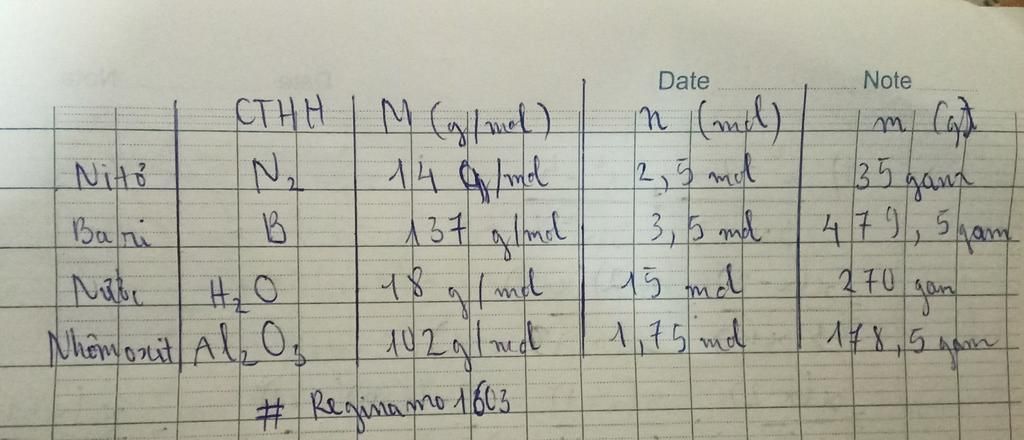 Date Note
CTHH M (g/mol) n (mol) m (g)
Nitơ N₂ 14 g/mol 2,5 mol 35 gam
Bari B 137 g/mol 3,5 mol 479,5 gam
Nước H₂O 18 g/mol 15 mol 270 gam
Nhôm oxit Al₂O₃ 102 g/mol 1,75 mol 178,5 gam
# Reginamo1603